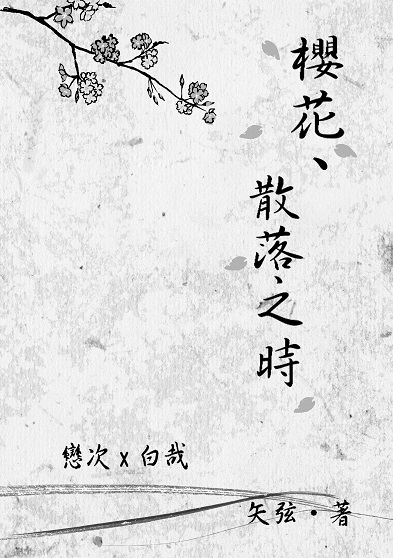 櫻花、
散落之時
戀次 x 白哉
矢弦•著